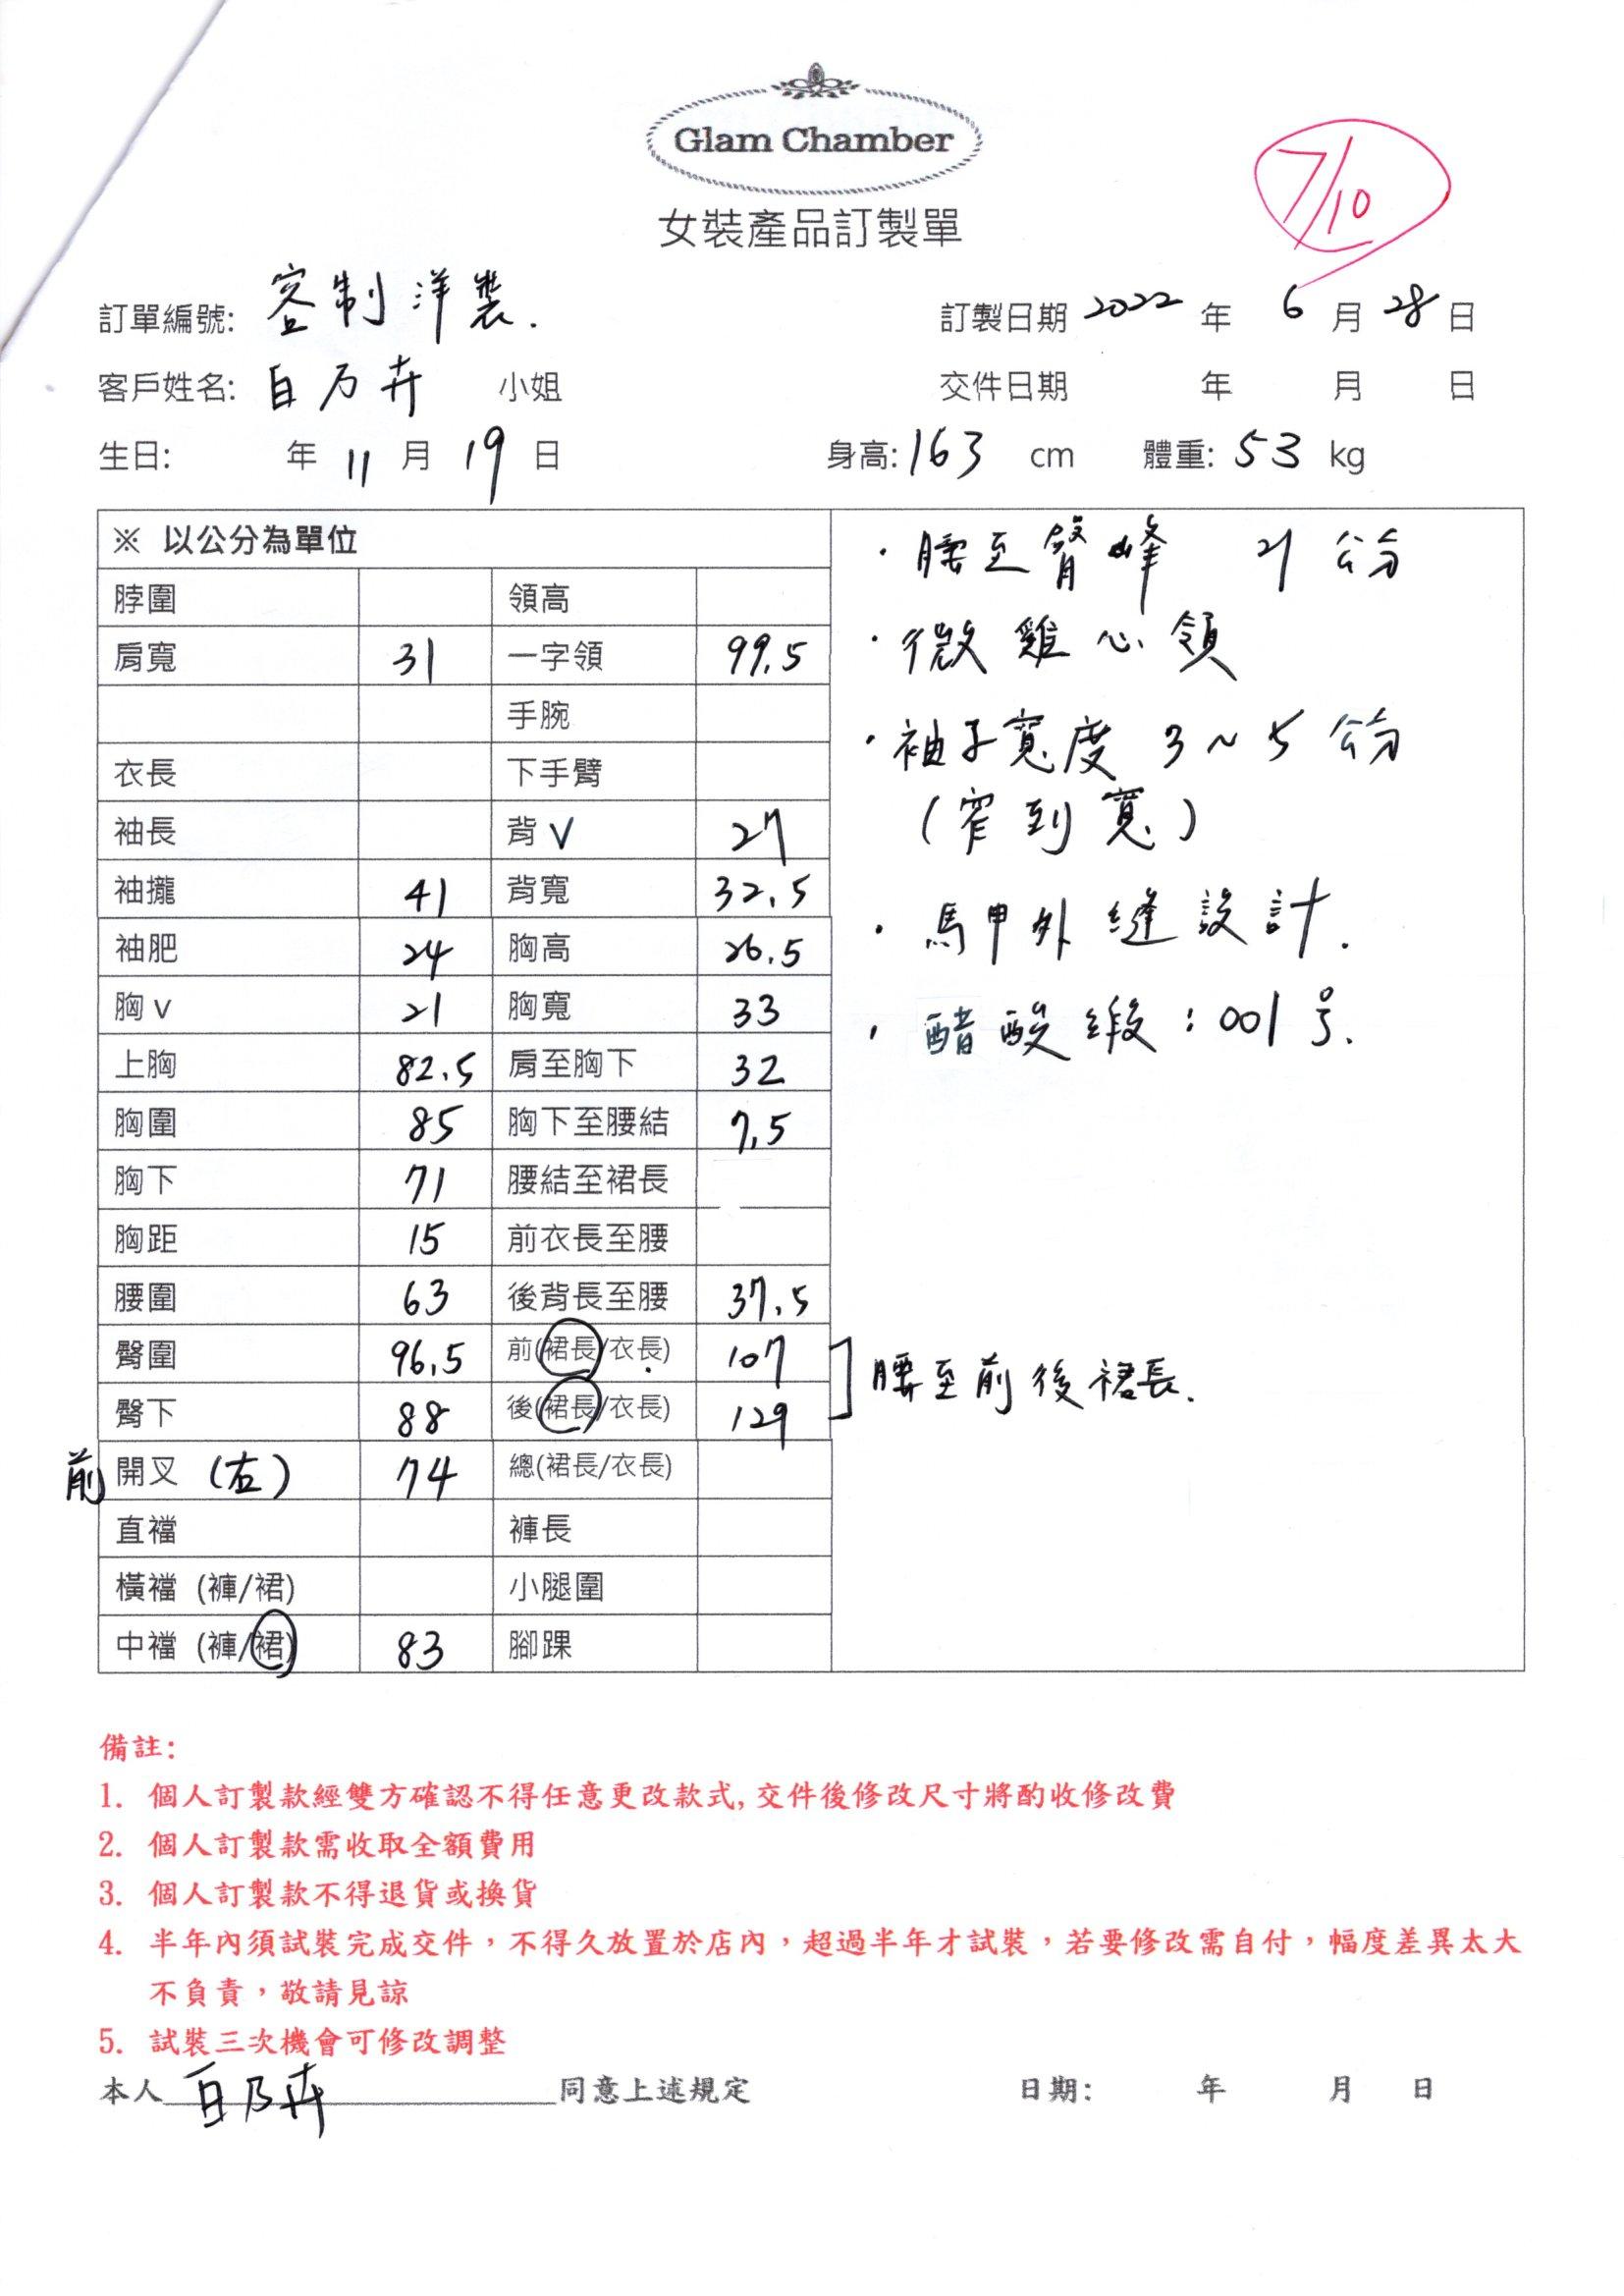 Glam Chamber
7/10
女裝產品訂製單
訂單編號: 客制洋裝.
訂製日期 2022 年 6 月 28 日
客戶姓名: 白乃卉 小姐
交件日期 年 月 日
生日: 年 11 月 19 日
身高: 163 cm 體重: 53 kg
※ 以公分為單位
脖圍 領高
肩寬 31 一字領 99.5
手腕
衣長 下手臂
袖長 背 V 27
袖攏 41 背寬 32.5
袖肥 24 胸高 26.5
胸 v 21 胸寬 33
上胸 82.5 肩至胸下 32
胸圍 85 胸下至腰結 7.5
胸下 71 腰結至裙長
胸距 15 前衣長至腰
腰圍 63 後背長至腰 37.5
臀圍 96.5 前(裙長/衣長) 107
臀下 88 後(裙長/衣長) 129
前 開叉 (左) 74 總(裙長/衣長)
直襠 褲長
橫襠 (褲/裙) 小腿圍
中襠 (褲/裙) 83 腳踝
·腰至臀峰 21 公分
·微雞心領
·袖子寬度 3~5 公分
(窄到寬)
·馬甲外縫設計.
·醋酸緞:001号.
腰至前後裙長.
備註:
1. 個人訂製款經雙方確認不得任意更改款式,交件後修改尺寸將酌收修改費
2. 個人訂製款需收取全額費用
3. 個人訂製款不得退貨或換貨
4. 半年內須試裝完成交件，不得久放置於店內，超過半年才試裝，若要修改需自付，幅度差異太大
不負責，敬請見諒
5. 試裝三次機會可修改調整
本人 白乃卉 同意上述規定 日期: 年 月 日